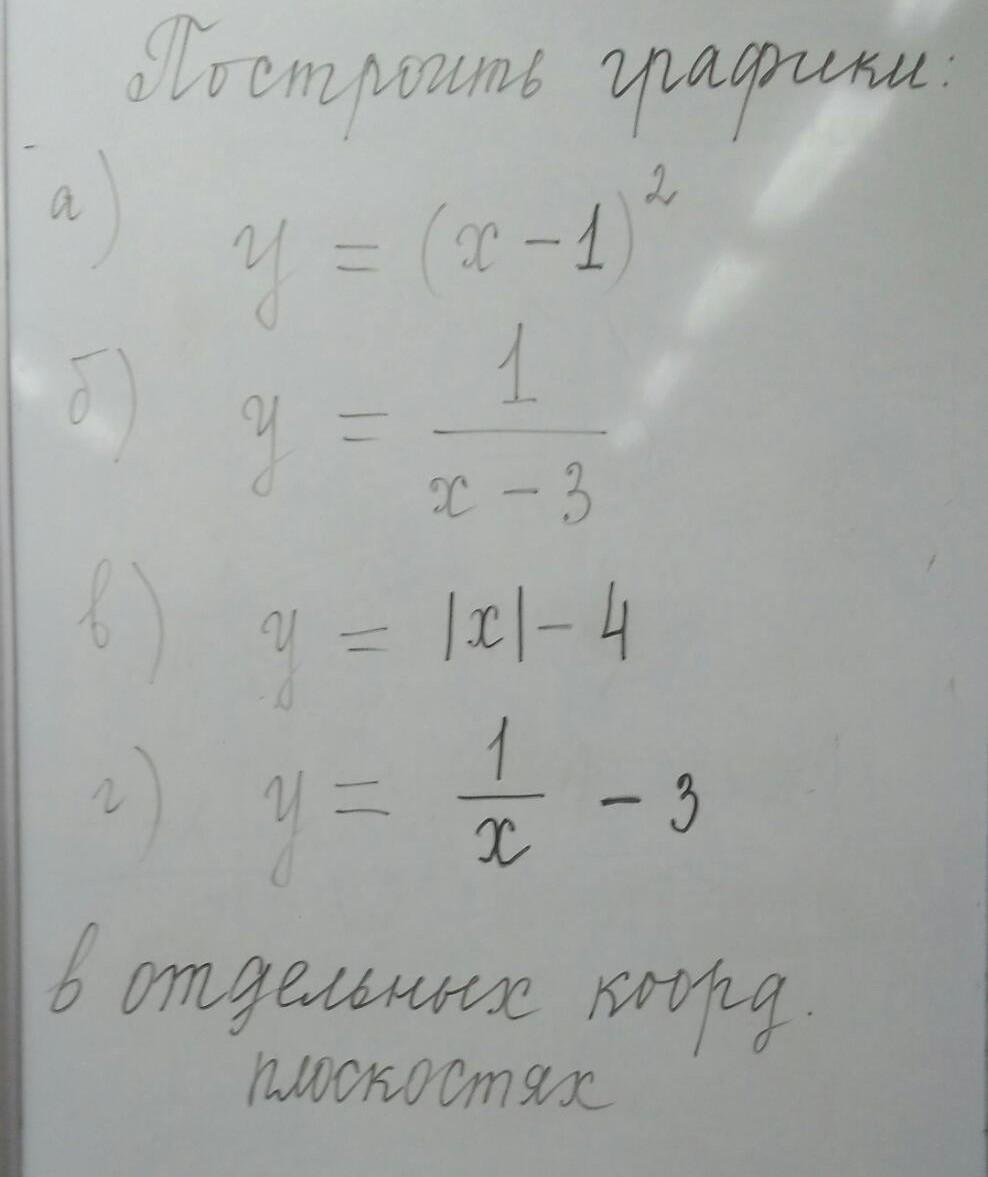 Построить графики:
а) y = (x - 1)²
б) y = 1/(x - 3)
в) y = |x| - 4
г) y = 1/x - 3
в отдельных коорд.
плоскостях